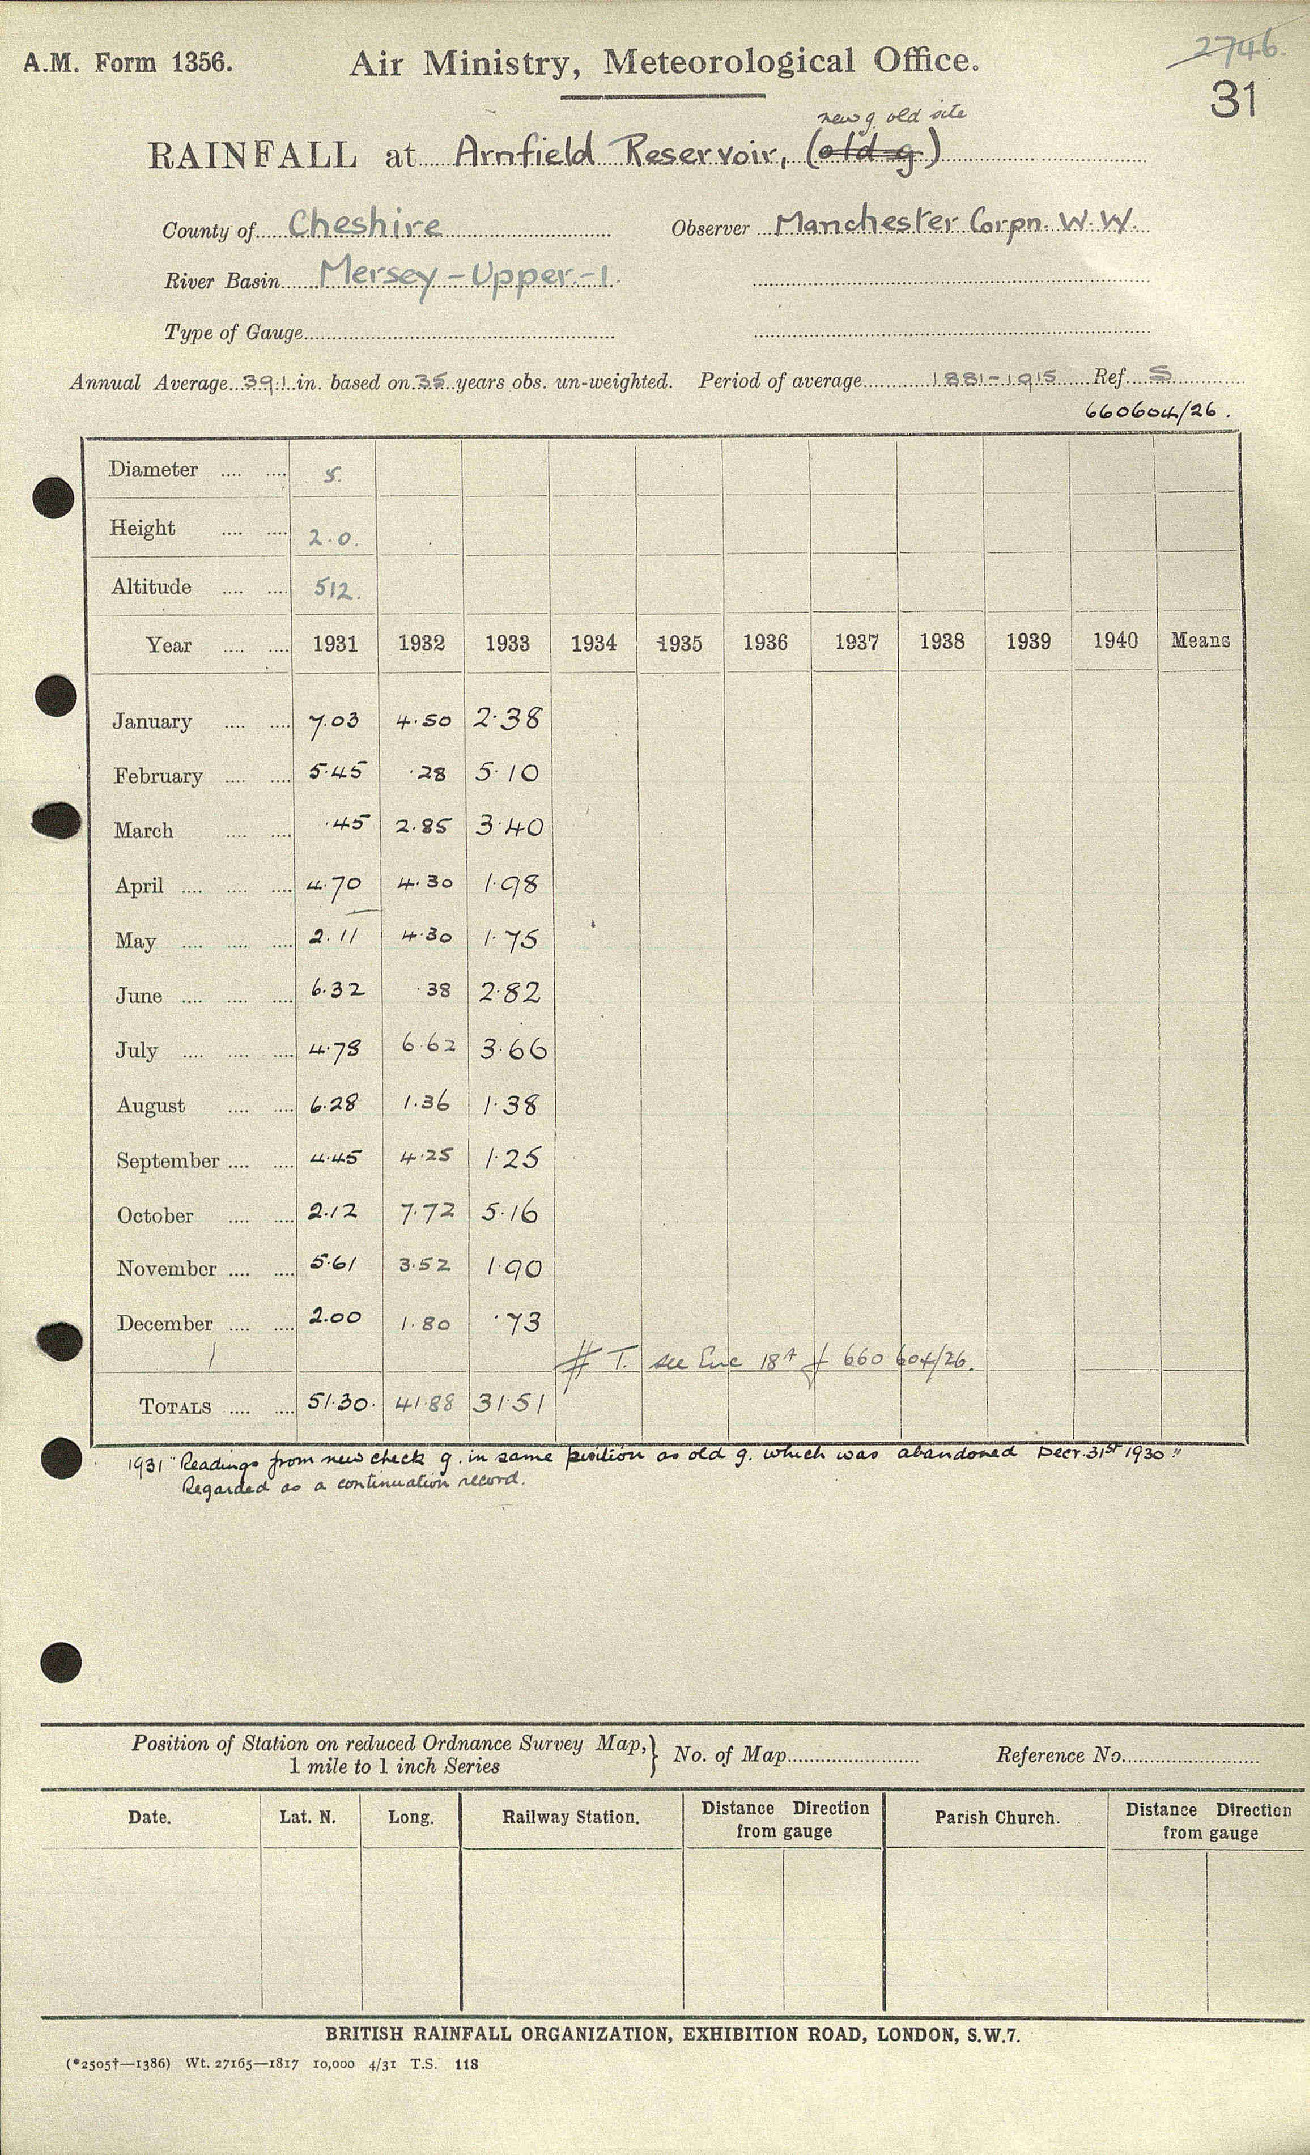 2746.
A.M. Form 1356. Air Ministry, Meteorological Office.
31
new g. old site
RAINFALL at Arnfield Reservoir, (old g)
County of Cheshire Observer Manchester Corpn. W.W.
River Basin Mersey - Upper - 1.
Type of Gauge
Annual Average 39.1 in. based on 35 years obs. un-weighted. Period of average 1881-1915 Ref. S
660604/26.
Diameter .... .... 5.
Height .... .... 2.0.
Altitude .... .... 512.
Year .... .... 1931 1932 1933 1934 1935 1936 1937 1938 1939 1940 Means
January .... .... 7.03 4.50 2.38
February .... .... 5.45 .28 5.10
March .... .... .45 2.85 3.40
April .... .... .... 4.70 4.30 1.98
May .... .... .... 2.11 4.30 1.75
June .... .... .... 6.32 .38 2.82
July .... .... .... 4.78 6.62 3.66
August .... .... 6.28 1.36 1.38
September .... .... 4.45 4.25 1.25
October .... .... 2.12 7.72 5.16
November .... .... 5.61 3.52 1.90
December .... .... 2.00 1.80 .73
# T. see Enc 18A of 660 604/26.
TOTALS .... .... 51.30. 41.88 31.51
1931 "Readings from new check g. in same position as old g. which was abandoned Decr. 31st 1930"
Regarded as a continuation record.
Position of Station on reduced Ordnance Survey Map,} No. of Map Reference No.
1 mile to 1 inch Series
Date. Lat. N. Long. Railway Station. Distance Direction from gauge Parish Church. Distance Direction from gauge
BRITISH RAINFALL ORGANIZATION, EXHIBITION ROAD, LONDON, S.W.7.
(*2505†—1386) Wt. 27165—1817 10,000 4/31 T.S. 118